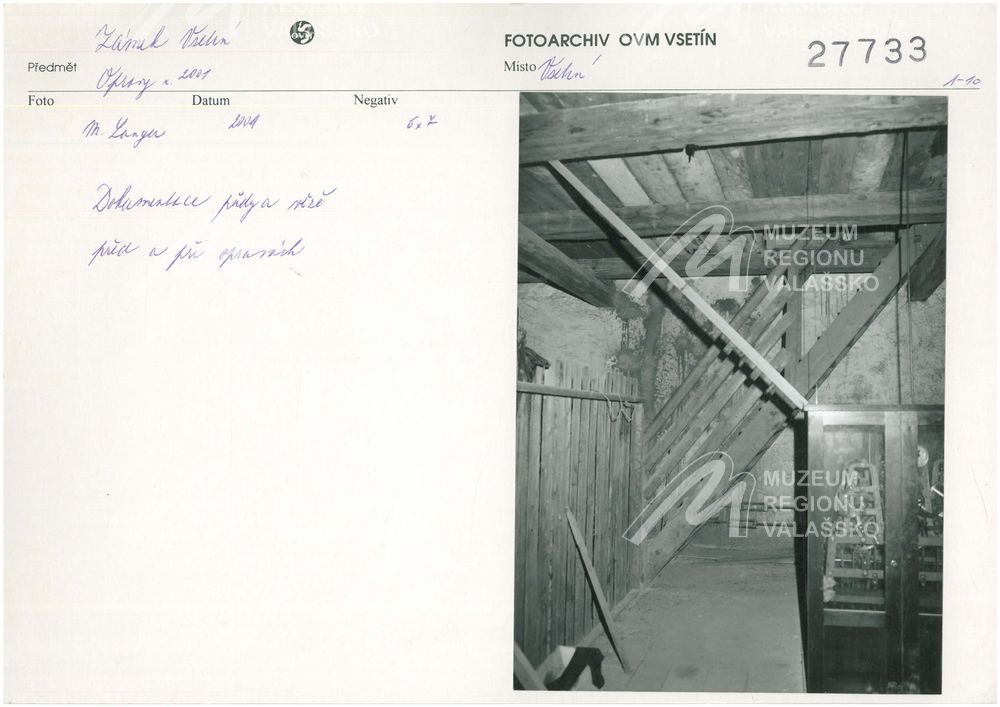 Zámek Vsetín
OVM
FOTOARCHIV OVM VSETÍN
27733
Předmět
Opravy r. 2001
Místo Vsetín
1-10
Foto Datum Negativ
M. Langer 2001 6x7
Dokumentace půdy a věže
před a při opravách
MUZEUM
REGIONU
VALAŠSKO
MUZEUM
REGIONU
VALAŠSKO